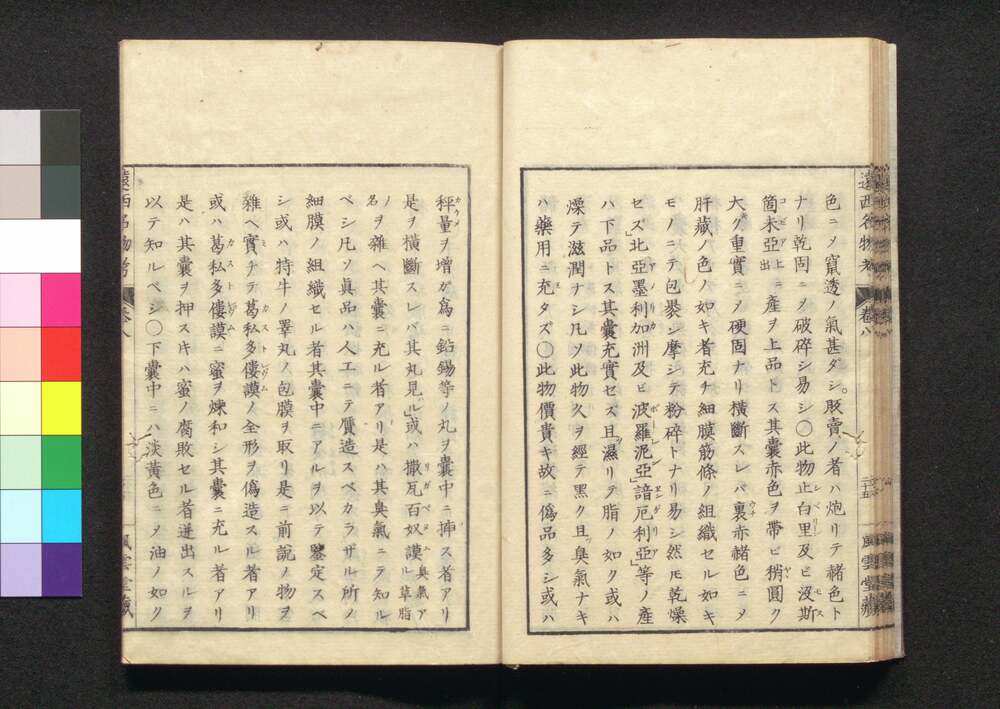 色ニメ竄透ノ氣甚ダシ。販賣ノ者ハ炮リテ赭色ト
ナリ乾固ニメ破碎シ易シ〇此物止白里及ビ没斯
箇未亞ニ産ヲ上品トス其囊赤色ヲ帶ビ稍圓ク
大ク重實ニメ硬固ナリ橫斷スレバ裏赤赭色ニメ
肝藏ノ色ノ如キ者充チ細膜筋條ノ組織セル如キ
モノニテ包裹シ摩シテ粉碎トナリ易シ然モ乾燥
セズ」北亞墨利加洲及ビ波羅泥亞」諳厄利亞」等ノ產
ハ下品トス其囊充實セズ且濕リテ脂ノ如ク或ハ
燥テ滋潤ナシ凡ソ此物久ヲ經テ黑ク且ツ臭氣ナキ
ハ藥用ニ充タズ〇此物價貴キ故ニ僞品多シ或ハ
遠西名物考 卷八 二十五 風雲堂藏
秤量ヲ增ガ爲ニ鉛錫等ノ丸ヲ囊中ニ挿ス者アリ
是ヲ橫斷スレバ其丸見ル」或ハ撒瓦百奴謨 臭氣アル草脂
ノ名ヲ雜ヘ其囊ニ充ル者アリ是ハ其臭氣ニテ知ル
ベシ凡ソ眞品ハ人工ニテ贋造スベカラザル所ノ
細膜ノ組織セル者其囊中ニアルヲ以テ鑒定スベ
シ或ハ特牛ノ睪丸ノ包膜ヲ取リ是ニ前說ノ物ヲ
雜ヘ實テヽ葛私多僂謨ノ全形ヲ僞造スル者アリ
或ハ葛私多僂謨ニ蜜ヲ煉和シ其囊ニ充ル者アリ
是ハ其囊ヲ押スキハ蜜ノ腐敗セル者迸出スルヲ
以テ知ルベシ〇下囊中ニハ淡黃色ニメ油ノ如ク
遠西名物考 卷八 風雲堂藏